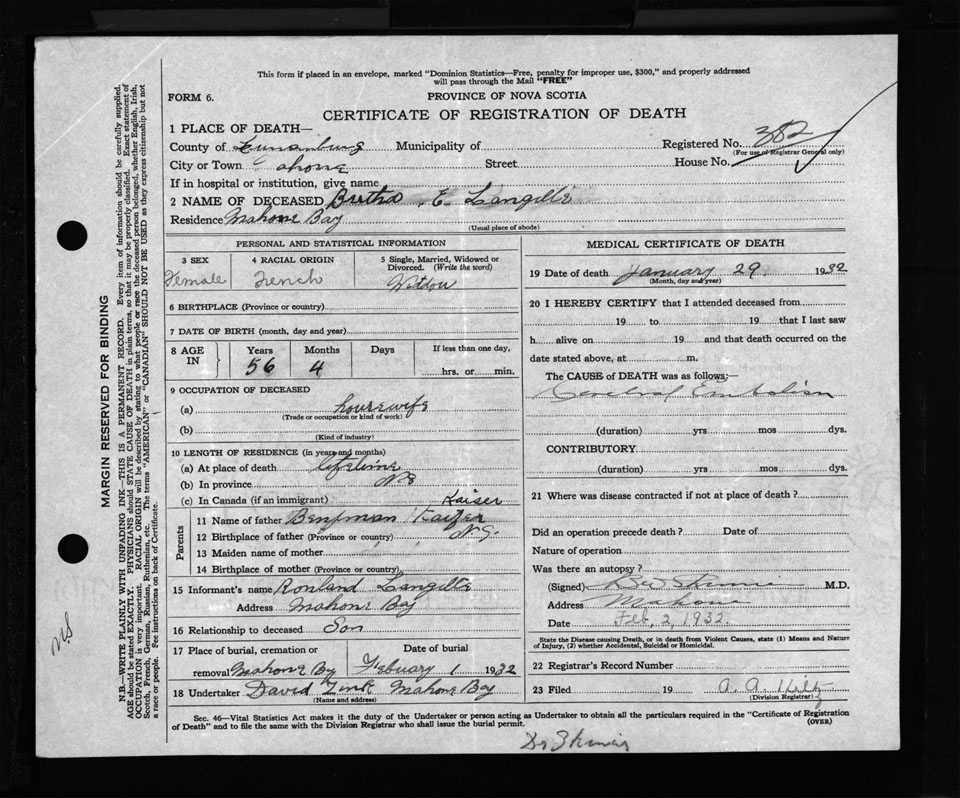 This form if placed in an envelope, marked "Dominion Statistics—Free, penalty for improper use, $300," and properly addressed
will pass through the Mail "FREE"
FORM 6.
PROVINCE OF NOVA SCOTIA
CERTIFICATE OF REGISTRATION OF DEATH
1 PLACE OF DEATH—
Registered No. 382
(For use of Registrar General only)
County of Lunenburg Municipality of
City or Town ahone Street House No.
If in hospital or institution, give name
2 NAME OF DECEASED Bertha E Langille
Residence Mahone Bay
(Usual place of abode)
PERSONAL AND STATISTICAL INFORMATION
3 SEX Female
4 RACIAL ORIGIN French
5 Single, Married, Widowed or Divorced. (Write the word) Widdow
6 BIRTHPLACE (Province or country)
7 DATE OF BIRTH (month, day and year)
8 AGE IN Years 56 Months 4 Days If less than one day, hrs. or min.
9 OCCUPATION OF DECEASED
(a) housewife
(Trade or occupation or kind of work)
(b)
(Kind of industry)
10 LENGTH OF RESIDENCE (in years and months)
(a) At place of death lifetime
(b) In province NS
(c) In Canada (if an immigrant)
Kaiser
Parents
11 Name of father Benjman Kaizer
12 Birthplace of father (Province or country) N.S.
13 Maiden name of mother
14 Birthplace of mother (Province or country)
15 Informant's name Ronland Langille
Address Mahone Bay
16 Relationship to deceased Son
17 Place of burial, cremation or removal Mahone By
Date of burial Febuary 1 1932
18 Undertaker David Zink Mahone Bay
(Name and address)
MEDICAL CERTIFICATE OF DEATH
19 Date of death January 29 1932
(Month, day and year)
20 I HEREBY CERTIFY that I attended deceased from
19 to 19 that I last saw
h alive on 19 and that death occurred on the
date stated above, at m.
The CAUSE of DEATH was as follows:—
Cerebral Embolism
(duration) yrs mos dys.
CONTRIBUTORY
(duration) yrs mos dys.
21 Where was disease contracted if not at place of death?
Did an operation precede death? Date of
Nature of operation
Was there an autopsy?
(Signed) M.D.
Address Mahone
Date Feb. 2, 1932.
State the Disease causing Death, or in death from Violent Causes, state (1) Means and Nature
of Injury, (2) whether Accidental, Suicidal or Homicidal.
22 Registrar's Record Number
23 Filed 19 A. A. Hiltz
(Division Registrar)
Sec. 46—Vital Statistics Act makes it the duty of the Undertaker or person acting as Undertaker to obtain all the particulars required in the "Certificate of Registration
of Death" and to file the same with the Division Registrar who shall issue the burial permit. (OVER)
MARGIN RESERVED FOR BINDING
N.B.—WRITE PLAINLY WITH UNFADING INK—THIS IS A PERMANENT RECORD. Every item of information should be carefully supplied.
AGE should be stated EXACTLY. PHYSICIANS should STATE CAUSE OF DEATH in plain terms, so that it may be properly classified. Exact statement of
OCCUPATION is very important. RACIAL ORIGIN will be described by stating to what people or race the deceased person belonged, whether English, Irish,
Scotch, French, German, Russian, Ruthenian, etc. The terms "AMERICAN" or "CANADIAN" SHOULD NOT BE USED as they express citizenship but not
a race or people. See instructions on back of Certificate.